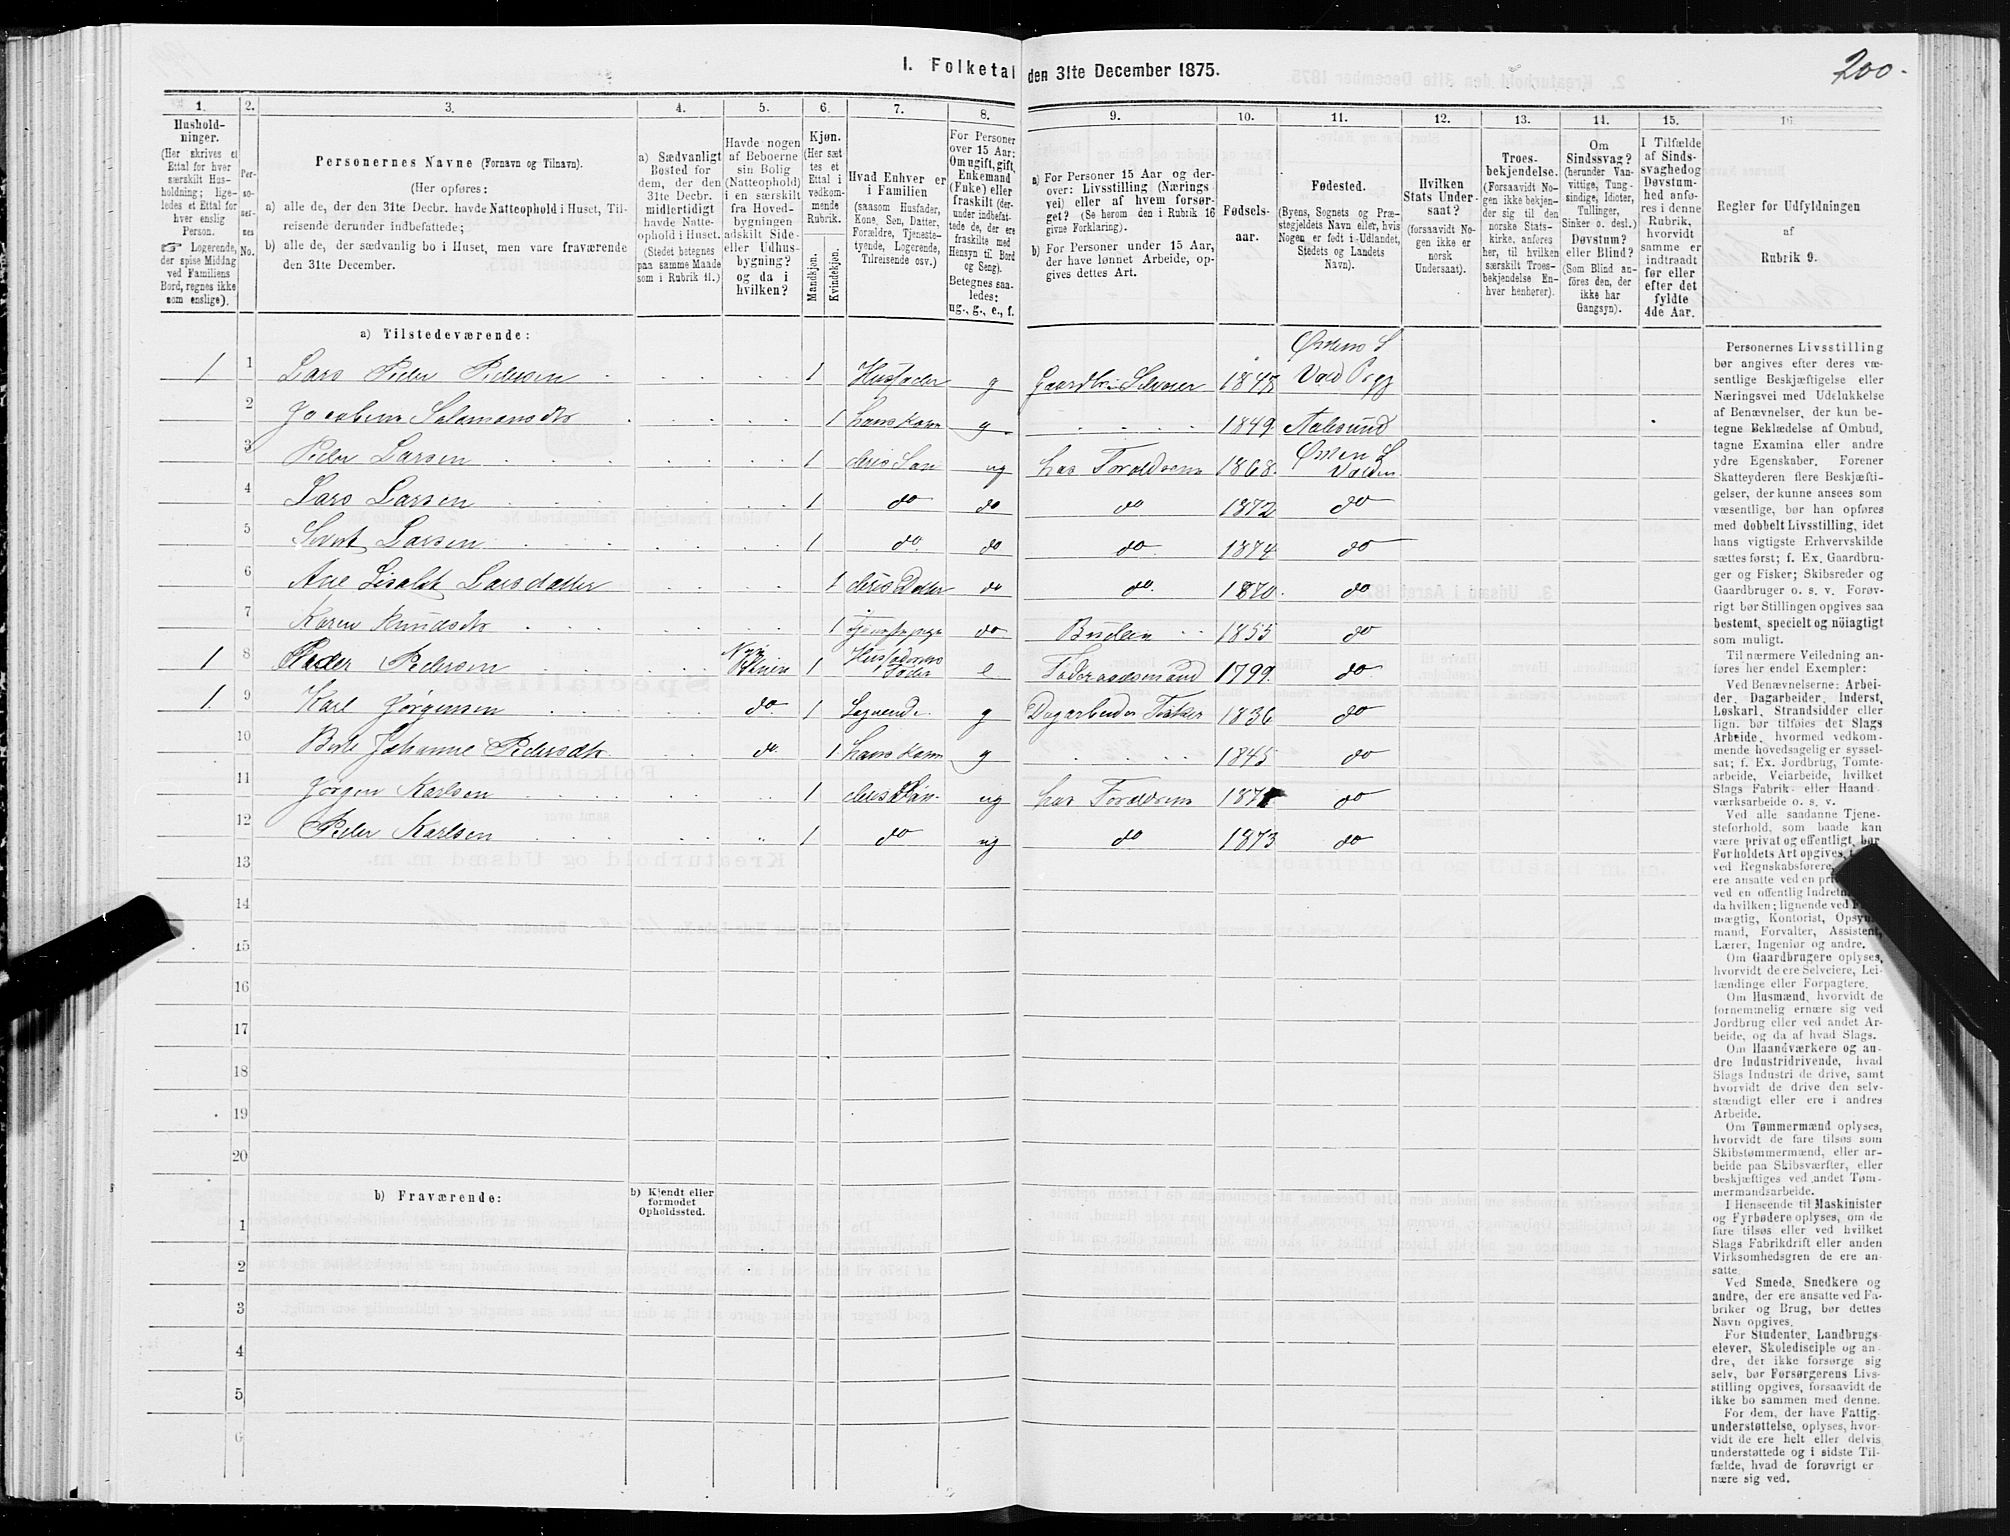 200.
I. Folketal den 31te December 1875.
1. 2. 3. 4. 5. 6. 7. 8. 9. 10. 11. 12. 13. 14. 15. 16.
Hushold-
ninger.
(Her skrives et
Ettal for hver
særskilt Hus-
holdning; lige-
ledes et Ettal for
hver enslig
Person.
☞ Logerende,
der spise Middag
ved Familiens
Bord, regnes ikke
som enslige).
Per-
so-
ner-
nes
No.
Personernes Navne (Fornavn og Tilnavn).
(Her opføres:
a) alle de, der den 31te Decbr. havde Natteophold i Huset, Til-
reisende derunder indbefattede;
b) alle de, der sædvanlig bo i Huset, men vare fraværende
den 31te December.
a) Sædvanligt
Bosted for
dem, der den
31te Decbr.
midlertidigt
havde Natte-
ophold i Huset.
(Stedet betegnes
paa samme Maade
som i Rubrik 11.)
Havde nogen
af Beboerne
sin Bolig
(Natteophold)
i en særskilt
fra Hoved-
bygningen
adskilt Side-
eller Udhus-
bygning?
og da i
hvilken?
Kjøn.
(Her sæt
tes et
Ettal i
vedkom-
mende
Rubrik.
Mandkjøn.
Kvindekjøn.
Hvad Enhver er
i Familien
(saasom Husfader,
Kone, Søn, Datter,
Forældre, Tjeneste-
tyende, Logerende,
Tilreisende osv.)
For Personer
over 15 Aar:
Om ugift, gift,
Enkemand
(Enke) eller
fraskilt (der-
under indbefat-
tede de, der ere
fraskilte med
Hensyn til Bord
og Seng).
Betegnes saa-
ledes:
ug., g., e., f.
a) For Personer 15 Aar og der-
over: Livsstilling (Nærings
vei) eller af hvem forsør-
get? (Se herom den i Rubrik 16
givne Forklaring).
b) For Personer under 15 Aar,
der have lønnet Arbeide, op-
gives dettes Art.
Fødsels-
aar.
Fødested.
(Byens, Sognets og Præ-
stegjeldets Navn eller, hvis
Nogen er født i Udlandet,
Stedets og Landets
Navn).
Hvilken
Stats Under-
saat?
(forsaavidt No-
gen ikke er
norsk
Undersaat).
Troes-
bekjendelse.
(Forsaavidt No-
gen ikke bekjen-
der sig til den
norske Stats-
kirke, anføres
her, til hvilken
særskilt Troes-
bekjendelse En-
hver henhører).
Om
Sindssvag?
(herunder Van-
vittige, Tung-
sindige, Idioter,
Tullinger,
Sinker o. desl.)
Døvstum?
eller Blind?
(Som Blind an-
føres den, der
ikke har
Gangsyn).
I Tilfælde
af Sinds-
svaghed og
Døvstum-
hed anfø-
res i denne
Rubrik,
hvorvidt
samme er
indtraadt
før eller
efter det
fyldte
4de Aar.
Regler for Udfyldningen
af
Rubrik 9.
a) Tilstedeværende:
1 1 Lars Peder Pedersen 1 Husfader g Gaardbr. Selveier 1848 Østens S Vold Prgj
2 1 hans Kone g 1849 Aalesund
3 Peder Larsen 1 deres Søn ug has Forældrene 1868 Østen S Volden
4 Lars Larsen 1 do do do 1872 do
5 Sivert Larsen 1 do do do 1874 do
6 Ane Larsdatter 1 deres Datter do do 1870 do
7 Karen Knudsdtr 1 Tjenestepige do Budeie 1855 do
1 8 Peder Pedersen 1 Husfaderens Fader e Føderaadsmand 1799 do
1 9 Karl Jørgensen do 1 Logerende g Dagarbeider Fisker 1836 do
10 Johanne Pedersdtr do 1 hans Kone g 1845 do
11 Jørgen Karlsen 1 deres Søn ug has Forældrene do
12 Peder Karlsen 1 do ug do 1873 do
13
14
15
16
17
18
19
20
b) Fraværende:
b) Kjendt eller
formodet
Opholdssted.
1
2
3
4
5
6
Personernes Livsstilling
bør angives efter deres væ-
sentlige Beskjæftigelse eller
Næringsvei med Udelukkelse
af Benævnelser, der kun be-
tegne Beklædelse af Ombud,
tagne Examina eller andre
ydre Egenskaber. Forener
Skatteyderen flere Beskjæfti-
gelser, der kunne ansees som
væsentlige, bør han opføres
med dobbelt Livsstilling, idet
hans vigtigste Erhvervskilde
sættes først; f. Ex. Gaardbru-
ger og Fisker; Skibsreder og
Gaardbruger o. s. v. Forøv-
rigt bør Stillingen opgives saa
bestemt, specielt og nöiagtigt
som muligt.
Til nærmere Veiledning an-
føres her endel Exempler:
Ved Benævnelserne: Arbei-
der, Dagarbeider, Inderst,
Løskarl, Strandsidder eller
lign. bør tilføies det Slags
Arbeide, hvormed vedkom-
mende hovedsagelig er syssel-
sat; f. Ex. Jordbrug, Tomte-
arbeide, Veiarbeide, hvilket
Slags Fabrik- eller Haand-
værksarbeide o. s. v.
Ved alle saadanne Tjene-
steforhold, som baade kan
være privat og offentligt, bør
Forholdets Art opgives,
ved Regnskabsførere,
ere ansatte ved en
ved en offentlig
da hvilken; lignende ved
mægtig, Kontorist,
mand, Forvalter, Assistent,
Lærer, Ingeniør og andre.
Om Gaardbrugere oplyses,
hvorvidt de ere Selveiere, Lei-
lændinge eller Forpagtere.
Om Husmænd, hvorvidt de
fornemmelig ernære sig ved
Jordbrug eller ved andet Ar-
beide, og da af hvad Slags.
Om Haandværkere og an-
dre Industridrivende, hvad
Slags Industri de drive, samt
hvorvidt de drive den selv-
stændigt eller ere i andres
Arbeide.
Om Tømmermænd oplyses,
hvorvidt de fare tilsøs som
Skibstømmermænd, eller ar-
beide paa Skibsværfter, eller
beskjæftiges ved andet Tøm-
mermandsarbeide.
I Henseende til Maskinister
og Fyrbødere oplyses, om de
fare tilsøs eller ved hvilket
Slags Fabrikdrift eller anden
Virksomhedsgren de ere an-
satte.
Ved Smede, Snedkere og
andre, der ere ansatte ved Fa-
briker og Brug, bør dettes
Navn opgives.
For Studenter, Landbrugs-
elever, Skoledisciple og an-
dre, der ikke forsørge sig
selv, bør Forsørgerens Livs-
stilling opgives, forsaavidt de
ikke bo sammen med denne.
For dem, der have Fattig-
understøttelse, oplyses, hvor-
vidt de ere helt eller delvis
understøttede og i sidste Til-
fælde, hvad de forøvrigt er-
nære sig ved.